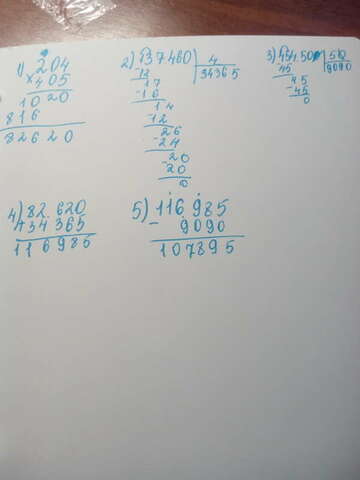 1) 204
× 405
1020
816
82620
2) 137460 | 4
12 | 34365
17
-16
14
12
26
-24
20
20
0
3) 454.50 | 50
45 | 9090
45
-45
0
4) 82.620
+34365
116985
5) 116985
- 9090
107895